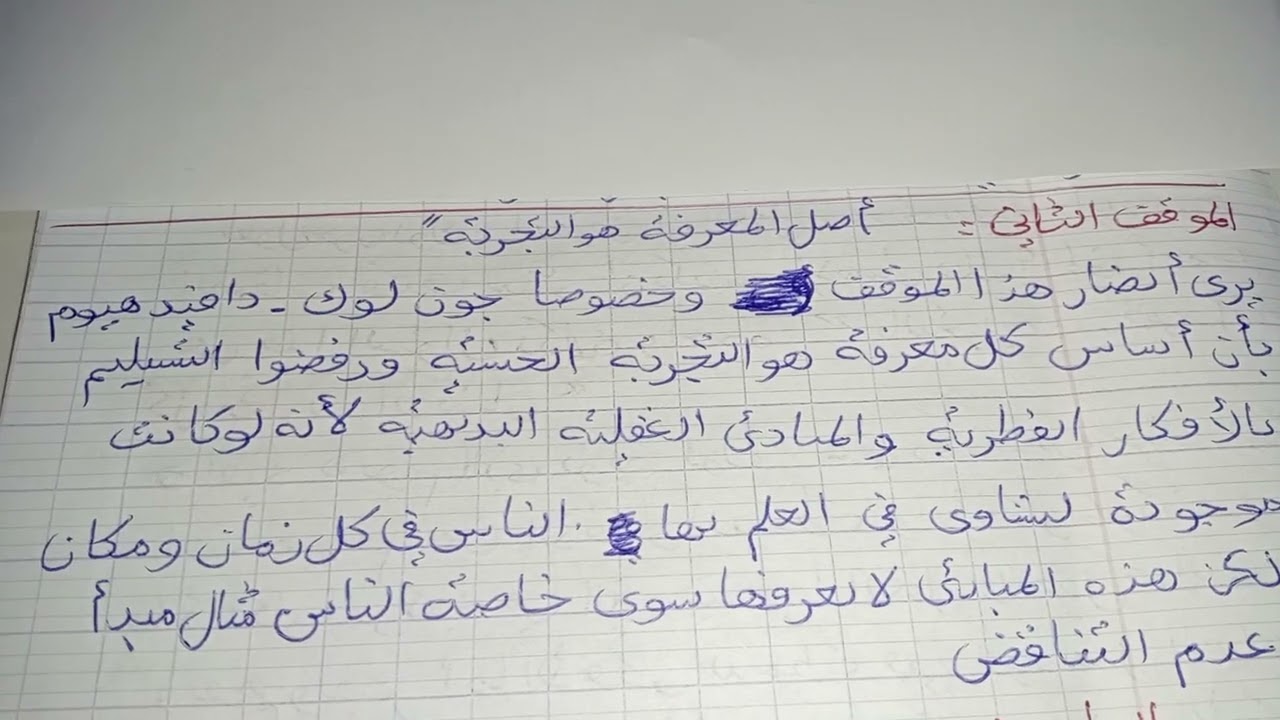 الموقف الثاني : أصل المعرفة هو التجربة "
يرى أنصار هذا الموقف وخصوصا جون لوك - دافيد هيوم
بأن أساس كل معرفة هو التجربة الحسية ورفضوا التسليم
بالأفكار الفطرية والمبادئ العقلية البديهية لأنه لو كانت
موجودة لتساوى في العلم بها . الناس في كل زمان ومكان
لكن هذه المبادئ لا يعرفها سوى خاصة الناس مثال مبدأ
عدم التناقض